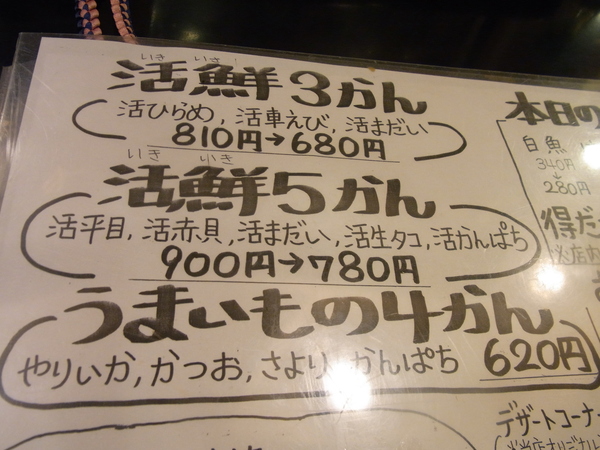 いき いき
活鮮3かん
活ひらめ, 活車えび, 活まだい
810円→680円
いき いき
活鮮5かん
活平目, 活赤貝, 活まだい, 活生タコ, 活かんぱち
900円→780円
うまいもの4かん
やりいか, かつお, さより, かんぱち 620円
本日の
白魚
340円
↓
280円
得だ
※店内
デザートコーナー